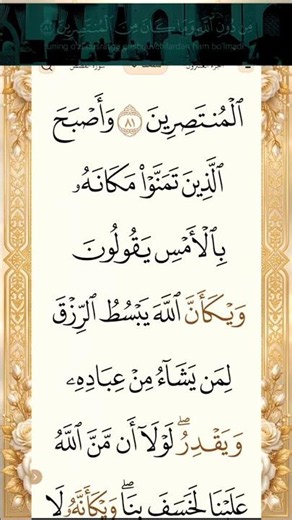 مِن دُونِ ٱللَّهِ وَمَا كَانَ مِنَ ٱلۡمُنتَصِرِينَ
ٱلۡمُنتَصِرِينَ ٨١ وَأَصۡبَحَ
ٱلَّذِينَ تَمَنَّوۡاْ مَكَانَهُۥ
بِٱلۡأَمۡسِ يَقُولُونَ
وَيۡكَأَنَّ ٱللَّهَ يَبۡسُطُ ٱلرِّزۡقَ
لِمَن يَشَآءُ مِنۡ عِبَادِهِۦ
وَيَقۡدِرُۖ لَوۡلَآ أَن مَّنَّ ٱللَّهُ
عَلَيۡنَا لَخَسَفَ بِنَاۖ وَيۡكَأَنَّهُۥ لَا